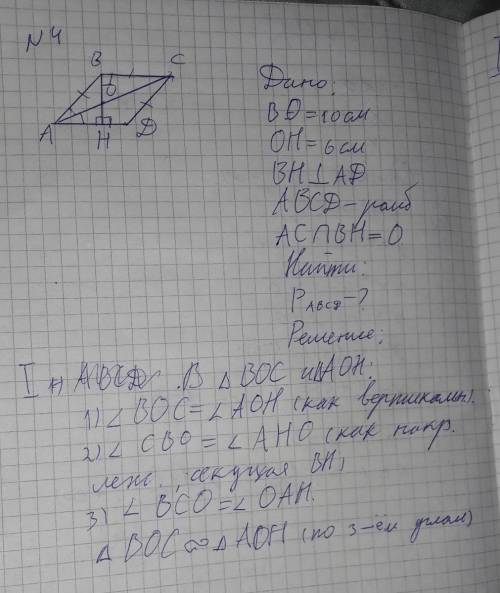 N 4
B C
O
A H D
Дано:
BO = 10 см
OH = 6 см
BH ⊥ AD
ABCD – ромб
AC ∩ BH = O
Найти:
P ABCD – ?
Решение:
I ABCD. В △ BOC и △ AOH.
1) ∠ BOC = ∠ AOH (как вертикальн).
2) ∠ CBO = ∠ AHO (как накр.
леж., секущая BH)
3) ∠ BCO = ∠ OAH.
△ BOC ∾ △ AOH (по 3-ём углам)